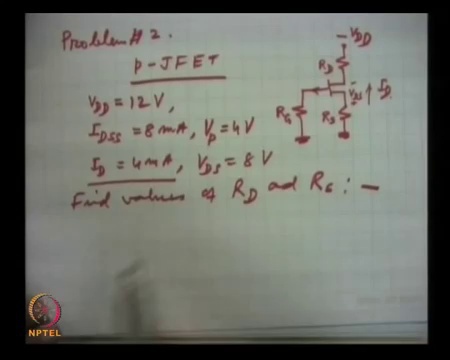 Problem # 2.
p-JFET
VDD = 12 V,
IDSS = 8 mA, VP = 4V
ID = 4 mA, VDS = 8 V
Find values of RD ad RS : —
- VDD
RD
VDS
ID
RG
RS
NPTEL